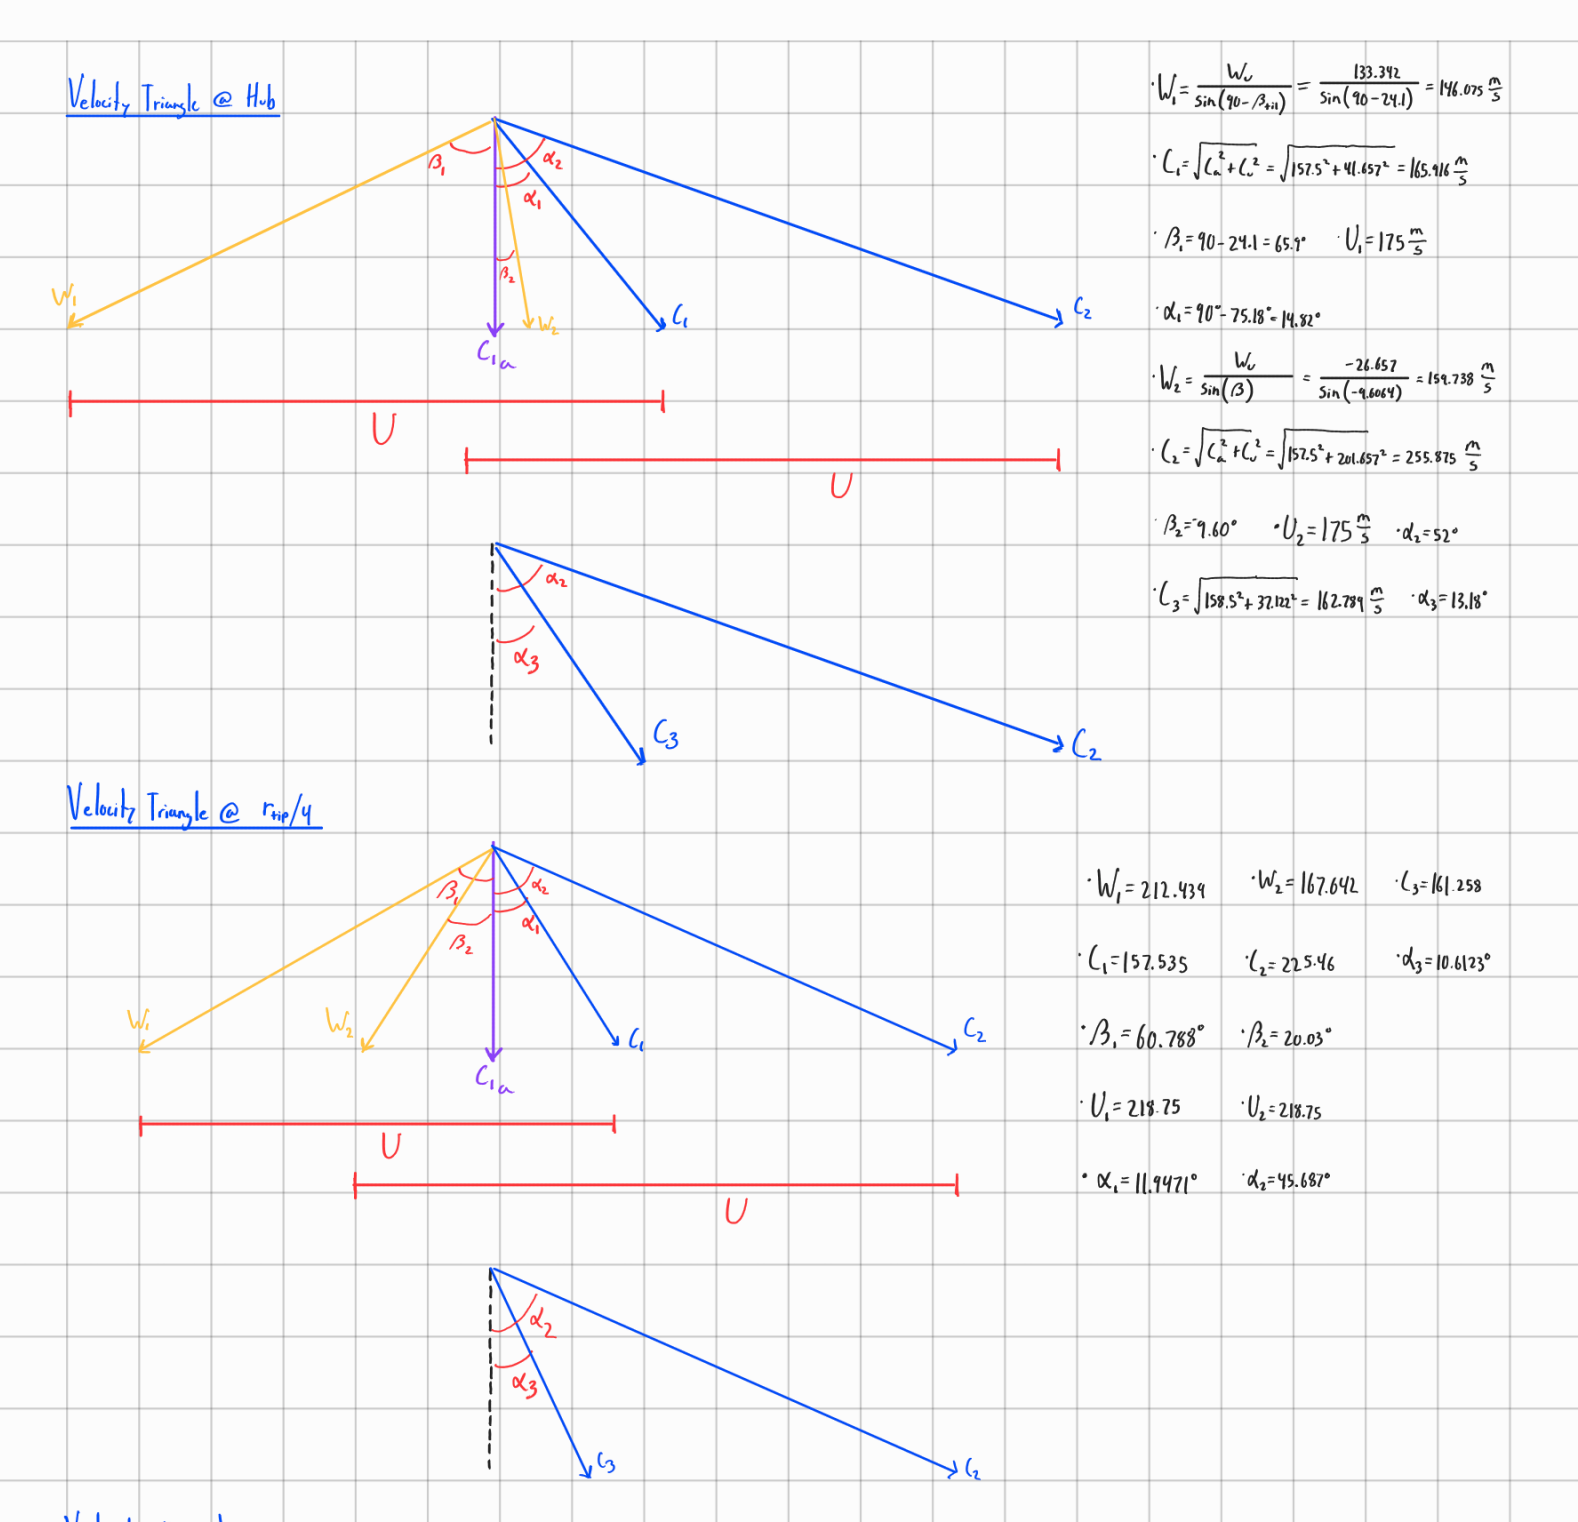 Velocity Triangle @ Hub
β₁
α₂
α₁
β₂
W₁
W₂
C₁
C₂
C₁ₐ
U
U
·W₁ = Wᵤ / sin(90-βₜᵢₗ) = 133.342 / sin(90-24.1) = 146.075 m/s
·C₁ = √(Cₐ²+Cᵤ²) = √(157.5²+41.657²) = 165.916 m/s
·β₁=90-24.1=65.9° ·U₁=175 m/s
·α₁=90°-75.18°=14.82°
·W₂ = Wᵤ / sin(β) = -26.657 / sin(-9.6064) = 159.738 m/s
·C₂ = √(Cₐ²+Cᵤ²) = √(157.5²+201.657²) = 255.875 m/s
·β₂=-9.60° ·U₂=175 m/s ·α₂=52°
·C₃ = √(158.5²+37.122²) = 162.789 m/s ·α₃=13.18°
α₂
α₃
C₃
C₂
Velocity Triangle @ r_tip/4
β₁
α₂
α₁
β₂
W₁
W₂
C₁
C₂
C₁ₐ
U
U
·W₁=212.439 ·W₂=167.642 ·C₃=161.258
·C₁=157.535 ·C₂=225.46 ·α₃=10.6123°
·β₁=60.788° ·β₂=20.03°
·U₁=218.75 ·U₂=218.75
·α₁=11.9471° ·α₂=45.687°
α₂
α₃
C₃
C₂